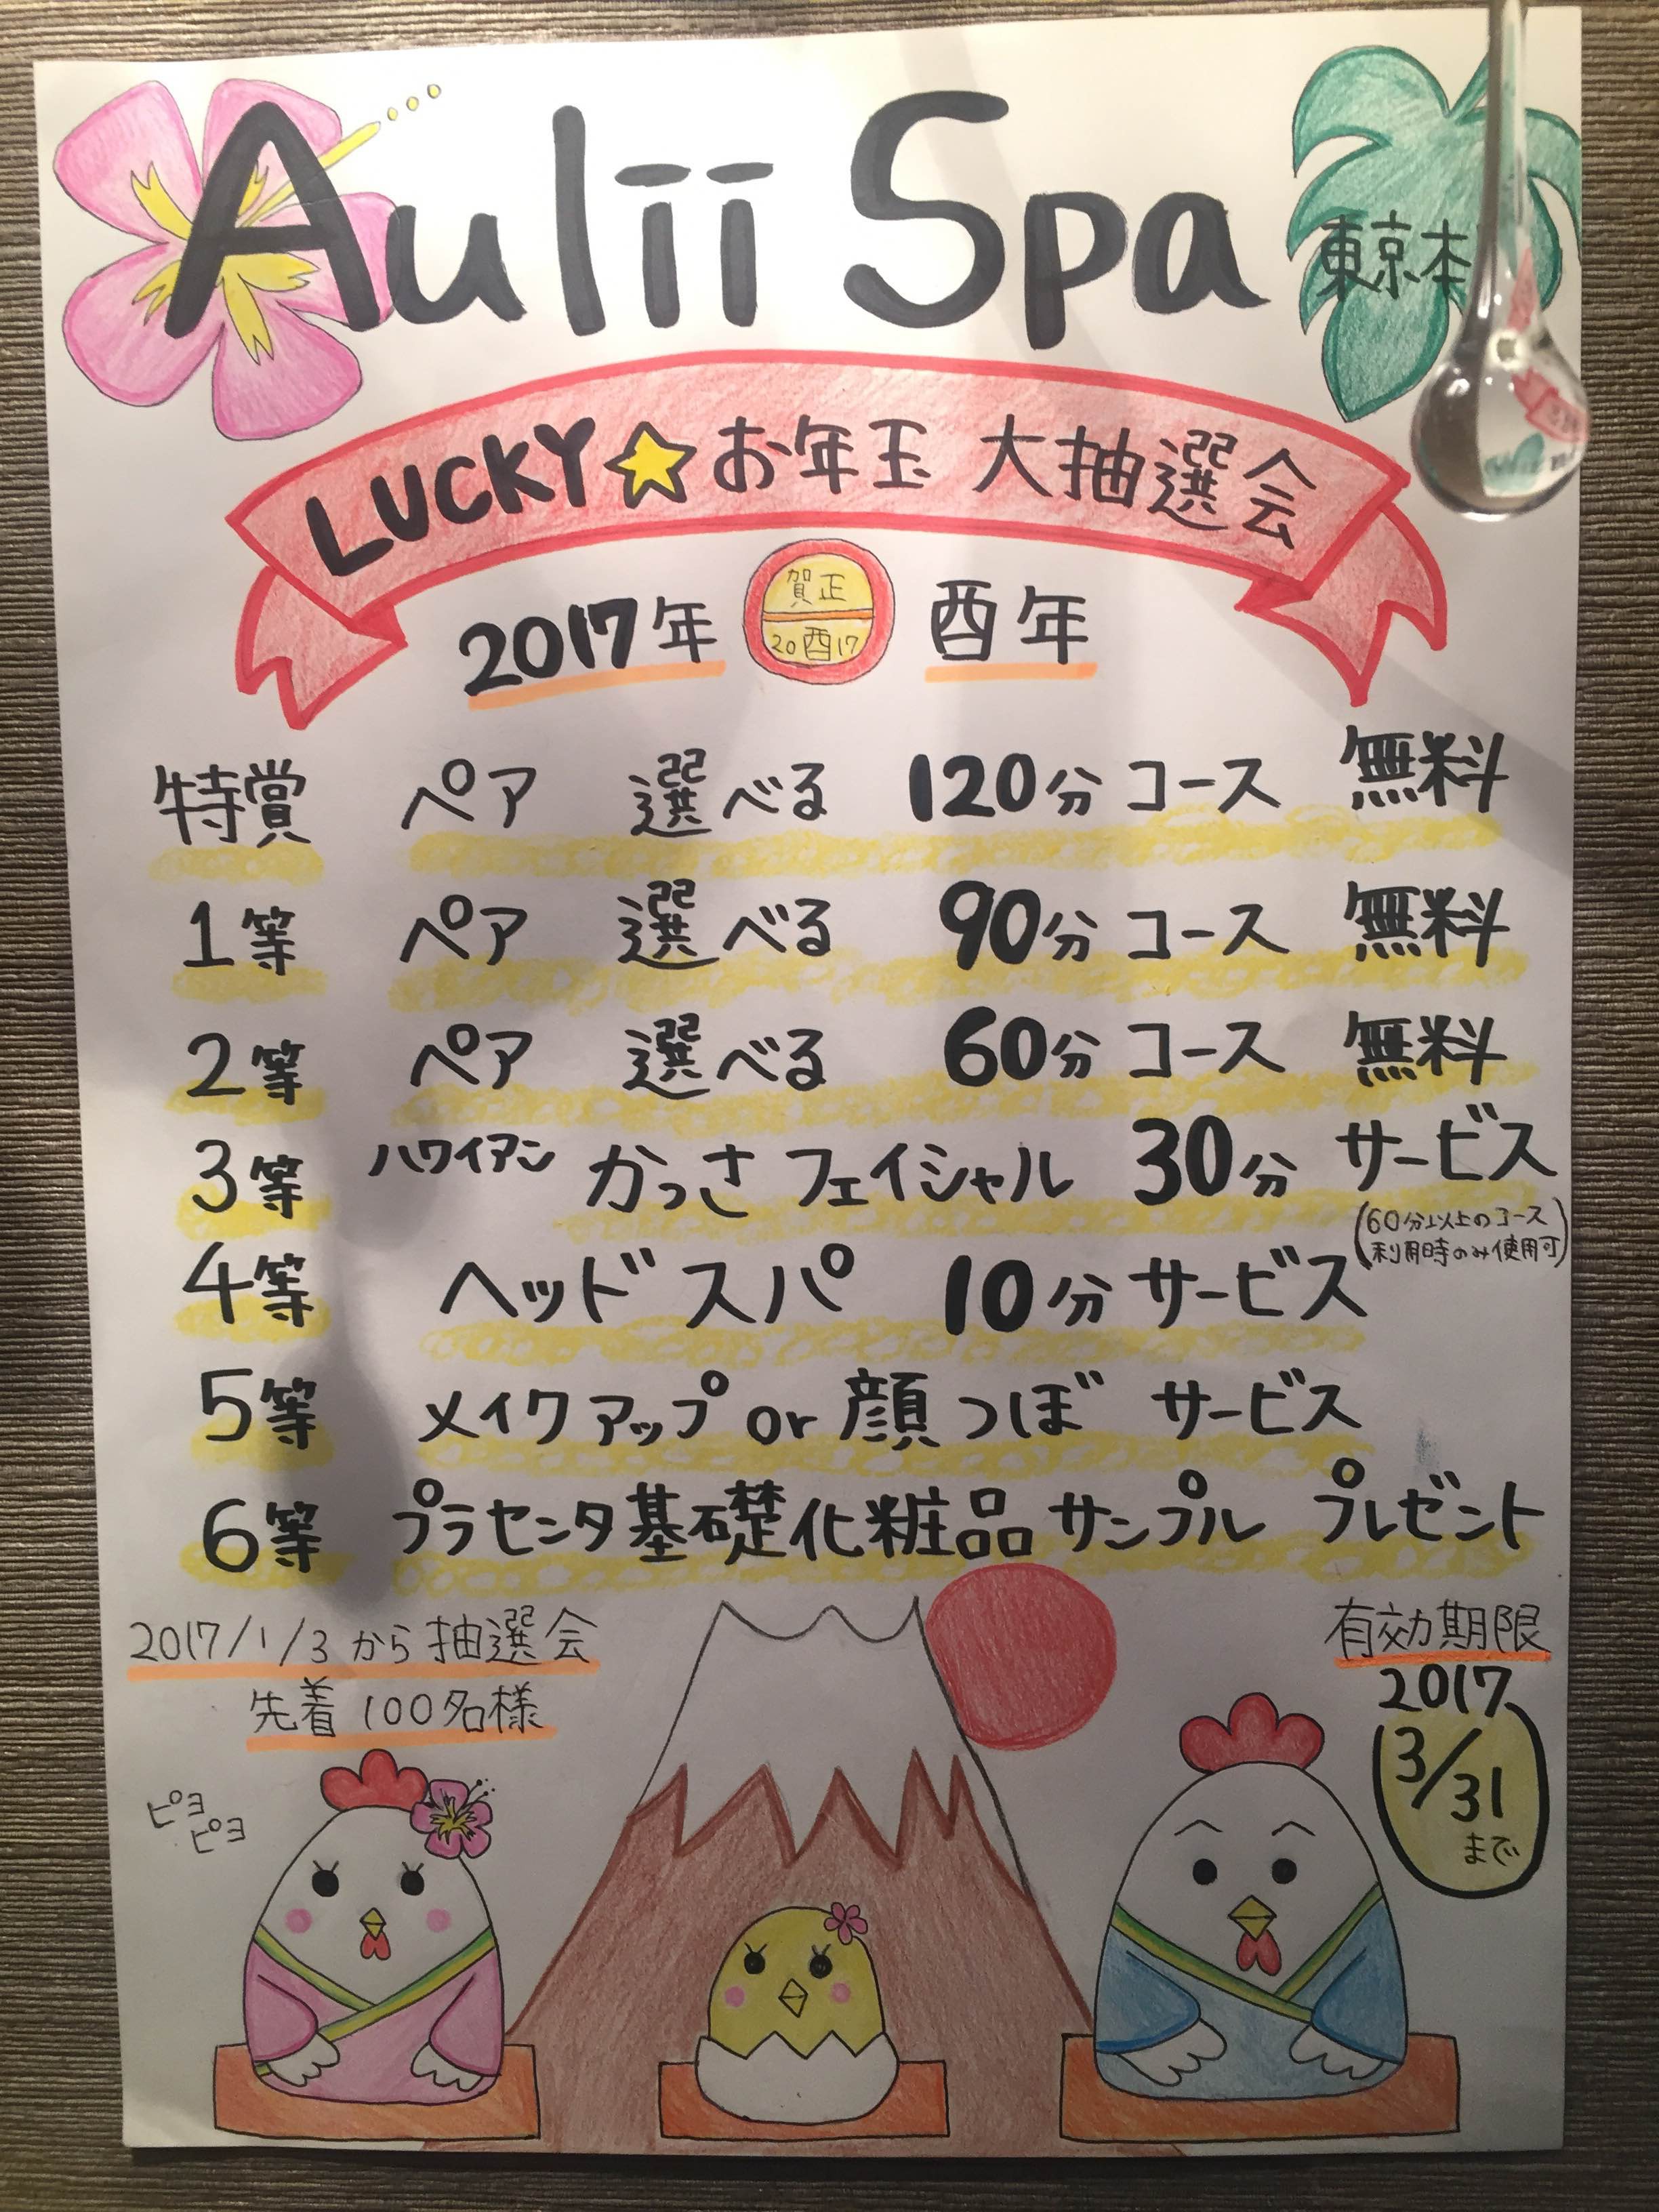 Aulii Spa
東京本
LUCKY☆お年玉 大抽選会
2017年 賀正 酉年
20酉17
特賞 ペア 選べる 120分コース 無料
1等 ペア 選べる 90分コース 無料
2等 ペア 選べる 60分コース 無料
3等 ハワイアン かっさフェイシャル 30分 サービス
(60分以上のコース
利用時のみ使用可)
4等 ヘッドスパ 10分サービス
5等 メイクアップor顔つぼ サービス
6等 プラセンタ基礎化粧品サンプル プレゼント
2017/1/3から抽選会
先着100名様
有効期限
2017
3/31
まで
ピヨ
ピヨ